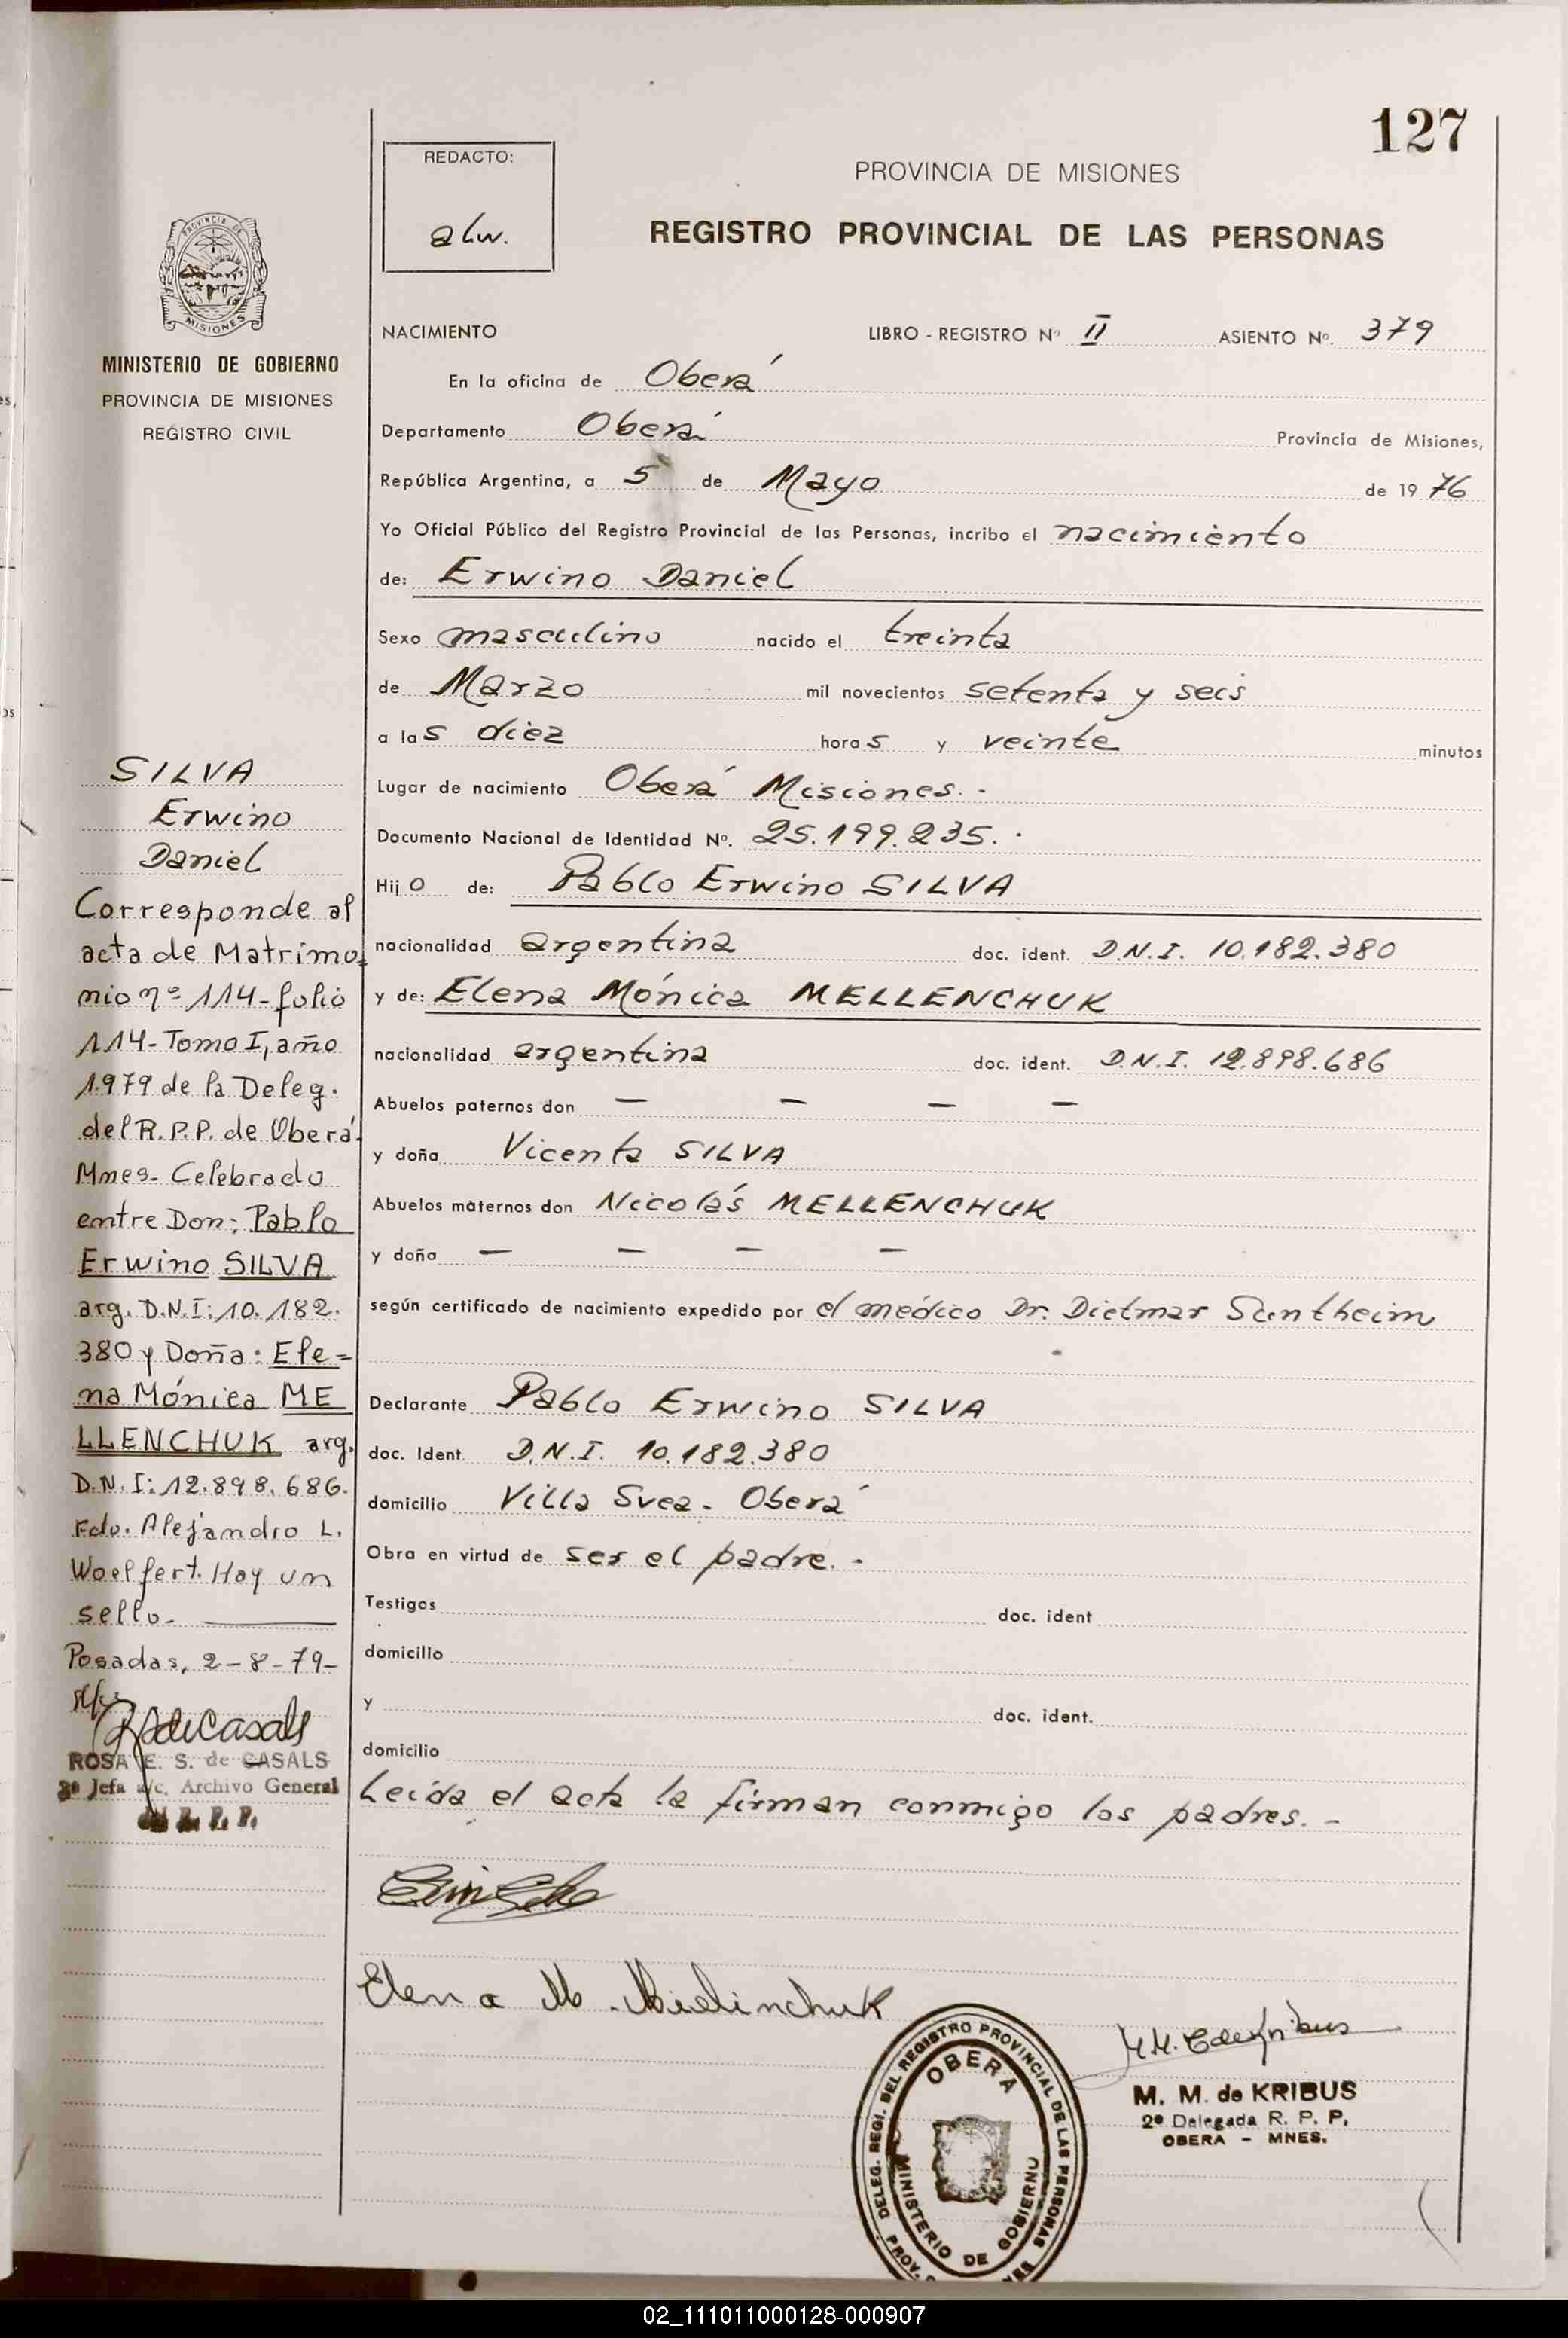 127
REDACTO:
alw.
PROVINCIA DE MISIONES
REGISTRO PROVINCIAL DE LAS PERSONAS
PROVINCIA DE
MISIONES
MINISTERIO DE GOBIERNO
PROVINCIA DE MISIONES
REGISTRO CIVIL
NACIMIENTO LIBRO - REGISTRO Nº II ASIENTO Nº. 379
En la oficina de Oberá
Departamento Oberá Provincia de Misiones,
República Argentina, a 5 de Mayo de 19 76
Yo Oficial Público del Registro Provincial de las Personas, incribo el nacimiento
de: Erwino Daniel
Sexo masculino nacido el treinta
de Marzo mil novecientos setenta y seis
a las diez horas y veinte minutos
Lugar de nacimiento Oberá Misiones.-
Documento Nacional de Identidad Nº. 25.199.235.
Hijo de: Pablo Erwino SILVA
nacionalidad argentina doc. ident. D.N.I. 10.182.380
y de: Elena Mónica MELLENCHUK
nacionalidad argentina doc. ident. D.N.I. 12.898.686
Abuelos paternos don — — — —
y doña Vicenta SILVA
Abuelos maternos don Nicolás MELLENCHUK
y doña — — — —
según certificado de nacimiento expedido por el médico Dr. Dietmar Suntheim
Declarante Pablo Erwino SILVA
doc. Ident. D.N.I. 10.182.380
domicilio Villa Svea - Oberá
Obra en virtud de ser el padre.-
Testigos doc. ident
domicilio
y doc. ident.
domicilio
Leída el acta la firman conmigo los padres.-
Elena M. Mielinchuk
SILVA
Erwino
Daniel
Corresponde al
acta de Matrimo=
nio nº 114-folio
114-Tomo I, año
1.979 de la Deleg.
del R.P.P. de Oberá-
Mnes. Celebrado
entre Don: Pablo
Erwino SILVA
arg. D.N.I: 10.182.
380 y Doña: Ele=
na Mónica ME
LLENCHUK arg.
D.N.I: 12.898.686.
Fdo. Alejandro L.
Woelfert. Hay un
sello.-
Posadas, 2-8-79-
ROSA E. S. de CASALS
2ª Jefa a/c. Archivo General
del R. P. P.
DELEG. REGI. DEL REGISTRO PROVINCIAL DE LAS PERSONAS
OBERA
MINISTERIO DE GOBIERNO
PROV.
M. M. de KRIBUS
2ª Delegada R. P. P.
OBERA - MNES.
02_111011000128-000907